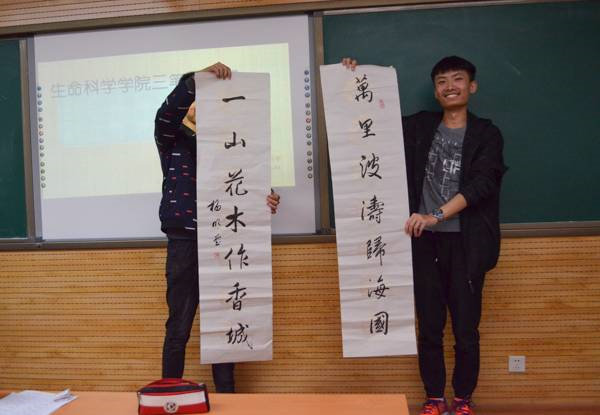 生命科学学院三
萬里波濤歸海國
一山花木作香城